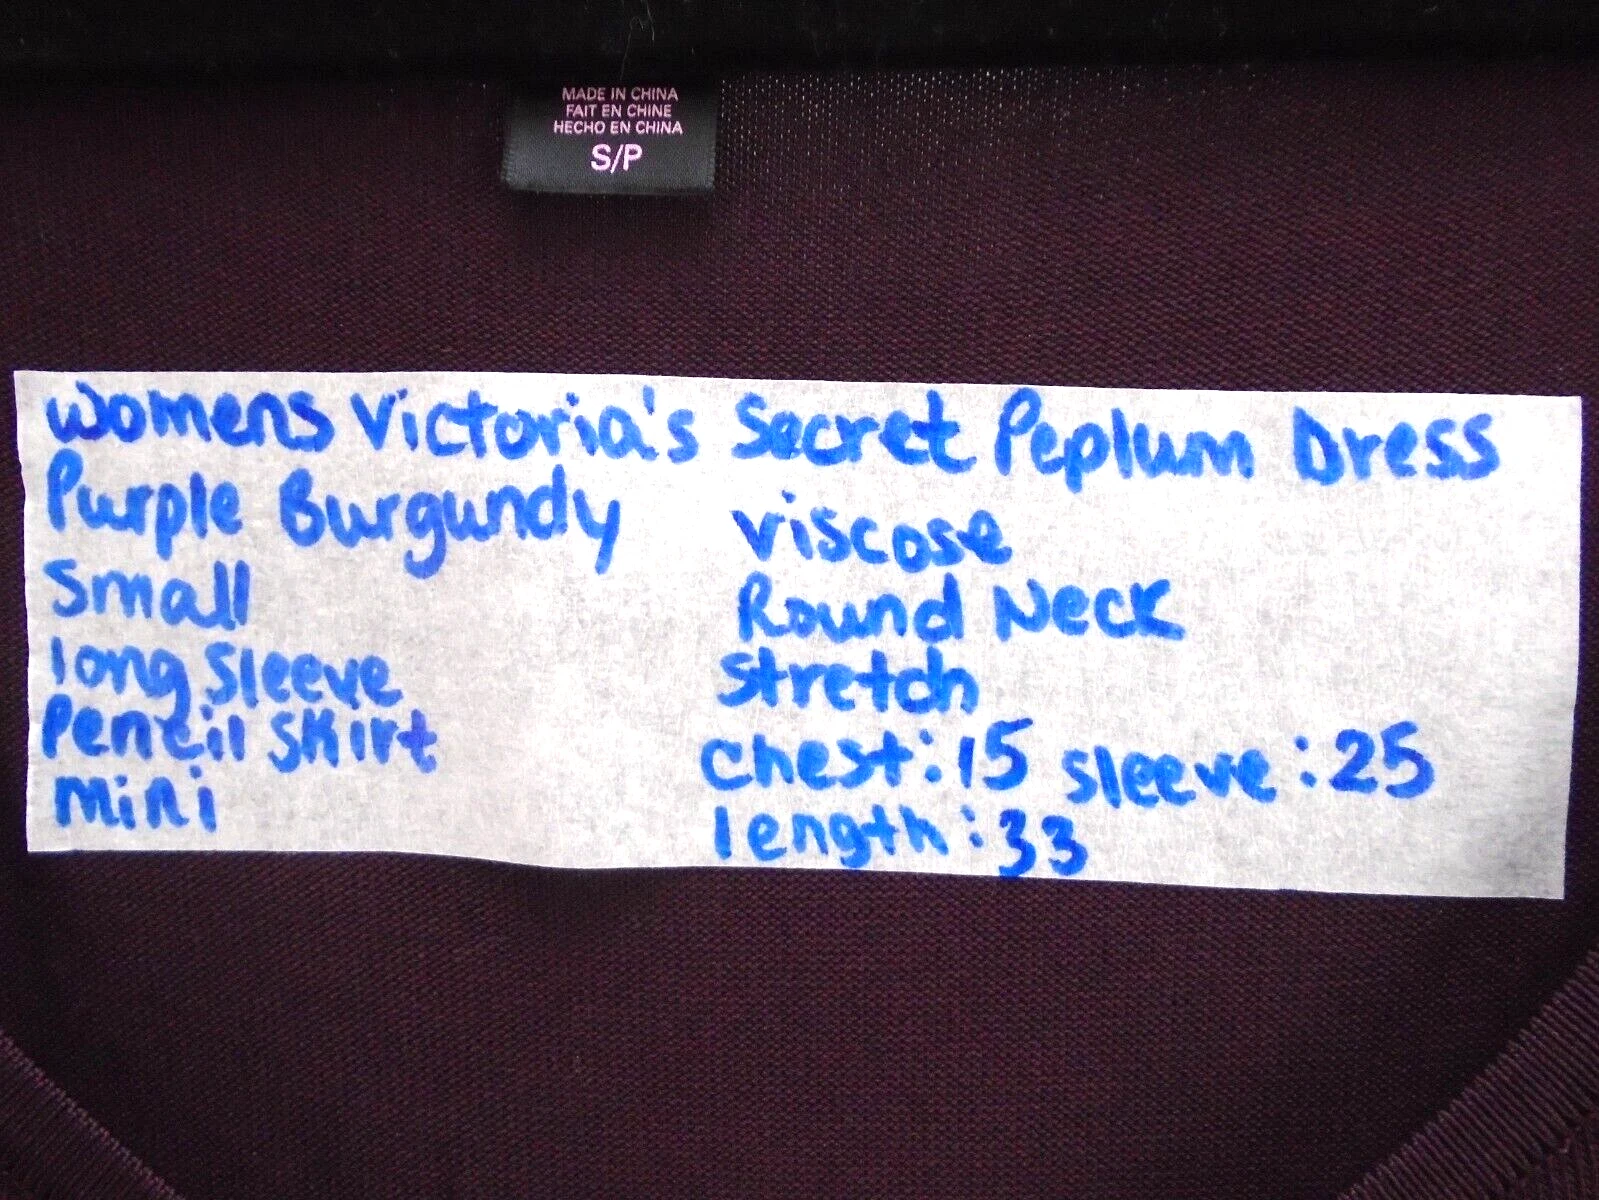 MADE IN CHINA
FAIT EN CHINE
HECHO EN CHINA
S/P
Womens Victoria's Secret Peplum Dress
Purple Burgundy
Small
long sleeve
Pencil skirt
mini
viscose
Round Neck
stretch
chest:15 sleeve:25
length:33